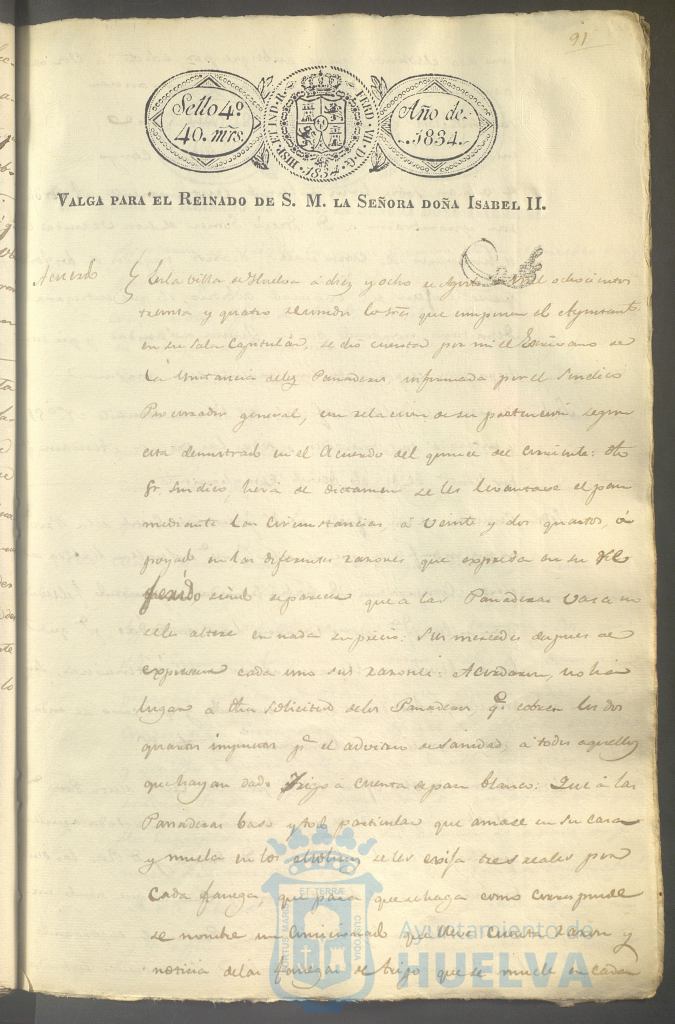 91
Sello 4º
40. mrs.
HISP. ET IND. R. FERD. VII. D. G.
1834
Año de
1834.
VALGA PARA EL REINADO DE S. M. LA SEÑORA DOÑA ISABEL II.
Acuerdo
En la Villa de Huelva á diez y ocho de Agosto mil ochocientos
treinta y quatro reunidos los Sres que componen el Ayuntamto
en su Sala Capitular, se dió cuenta por mi el Escribano de
la Instancia de los Panaderos, informada por el Sindico
Procurador general, con relacion de su pretencion segun
esta demostrado en el Acuerdo del quince del corriente: dho
Sr. Sindico, hera de dictamen se les levantase el pan
mediante las circunstancias, á veinte y dos quartos, á
poyado en las diferentes razones que expresa en su re
ferido siendo de parecer que a las Panaderas no
se les altere en nada su precio: Sus mercedes despues de
expresar cada uno sus razones: Acordaron, no ha
lugar á dha solicitud de los Panaderos, qe. cobren los dos
quartos impuestos pr. el advitrio de Sanidad, á todos aquellos
que hayan dado trigo á cuenta de pan blanco: Que á las
Panaderas baso y todo particular que amase en su casa
y muela en los se les exija tres reales por
cada fanega, que para que se haga como corresponde
se nombre un comicionado que lleve cuenta razon y
noticia de las fanegas de trigo que se muele en cada
PORTUS MARIS ET TERRÆ CUSTODIA
Ayuntamiento de
HUELVA